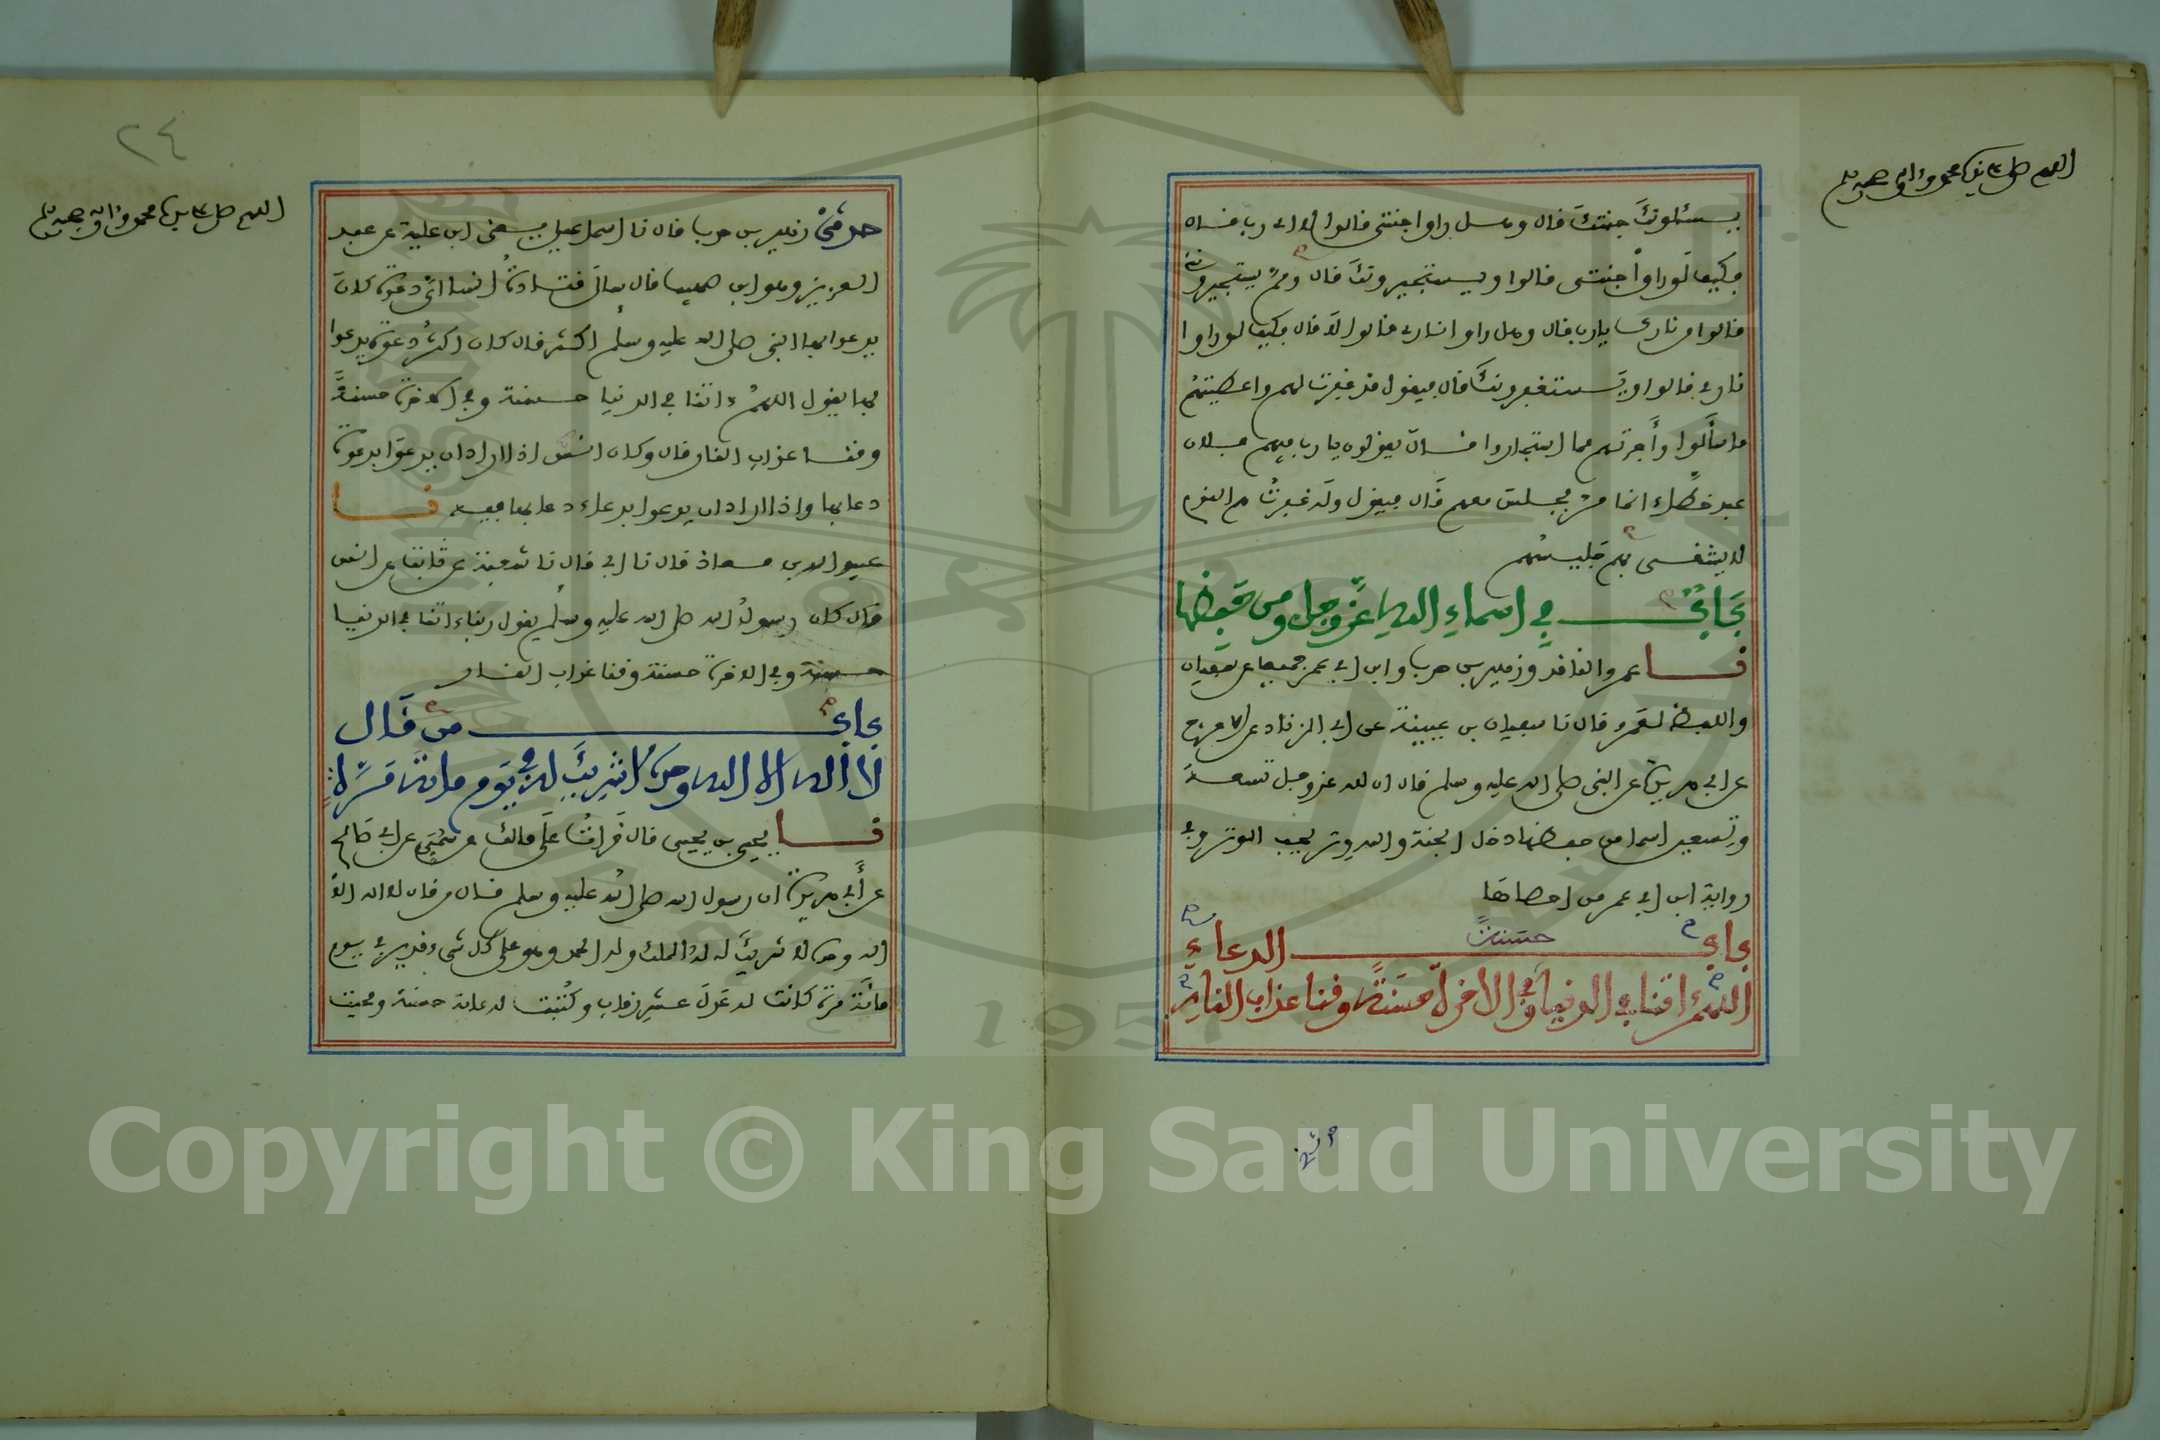 اللهم صل على سيدنا محمد وآله وصحبه
يسئلونك جنتك قال وهل راوا جنتي قالوا لا اي رب قال
فكيف لو راوا جنتي قالوا ويستجيرونك قال ومم يستجيرونني
قالوا من نارك يا رب قال وهل راوا ناري قالوا لا قال فكيف لو راوا
ناري قالوا ويستغفرونك قال فيقول قد غفرت لهم واعطيتهم
ما سألوا وأجرتهم مما استجاروا قال يقولون يا رب فيهم فلان
عبد خطاء انما مر فجلس معهم قال فيقول وله غفرت هم القوم
لا يشقى بهم جليسهم
باب في اسماء الله عز وجل ومن حفظها
نا عمرو الناقد وزهير بن حرب وابن ابي عمر جميعا عن سفيان
واللفظ لعمرو قال نا سفيان بن عيينة عن ابي الزناد عن الاعرج
عن ابي هريرة عن النبي صلى الله عليه وسلم قال ان لله عز وجل تسعة
وتسعين اسما من حفظها دخل الجنة والله وتر يحب الوتر وفي
رواية ابن ابي عمر من احصاها
باب الدعاء
حسنة
اللهم ءاتنا في الدنيا وفي الاخرة حسنة وقنا عذاب النار
٢٤
اللهم صل على سيدنا محمد وآله وصحبه
حدثني زهير بن حرب قال نا اسماعيل يعني ابن علية عن عبد
العزيز وهو ابن صهيب قال سال قتادة انسا اي دعوة كان
يدعو بها النبي صلى الله عليه وسلم اكثر قال كان اكثر دعوة يدعوا
بها يقول اللهم ءاتنا في الدنيا حسنة وفي الاخرة حسنة
وقنا عذاب النار قال وكان انس اذا اراد ان يدعوا بدعوة
دعا بها واذا اراد ان يدعوا بدعاء دعا بها فيه نا
عبيد الله بن معاذ قال نا ابي قال نا شعبة عن ثابت عن انس
قال كان رسول الله صلى الله عليه وسلم يقول ربنا ءاتنا في الدنيا
حسنة وفي الاخرة حسنة وقنا عذاب النار
باب من قال
لا اله الا الله وحده لا شريك له في يوم مائة مرة
نا يحيى بن يحيى قال قرات على مالك عن سمي عن ابي صالح
عن أبي هريرة ان رسول الله صلى الله عليه وسلم قال من قال لا اله الا
الله وحده لا شريك له له الملك وله الحمد وهو على كل شيء قدير في يوم
مائة مرة كانت له عدل عشر رقاب وكتبت له مائة حسنة ومحيت
Copyright © King Saud University
1957